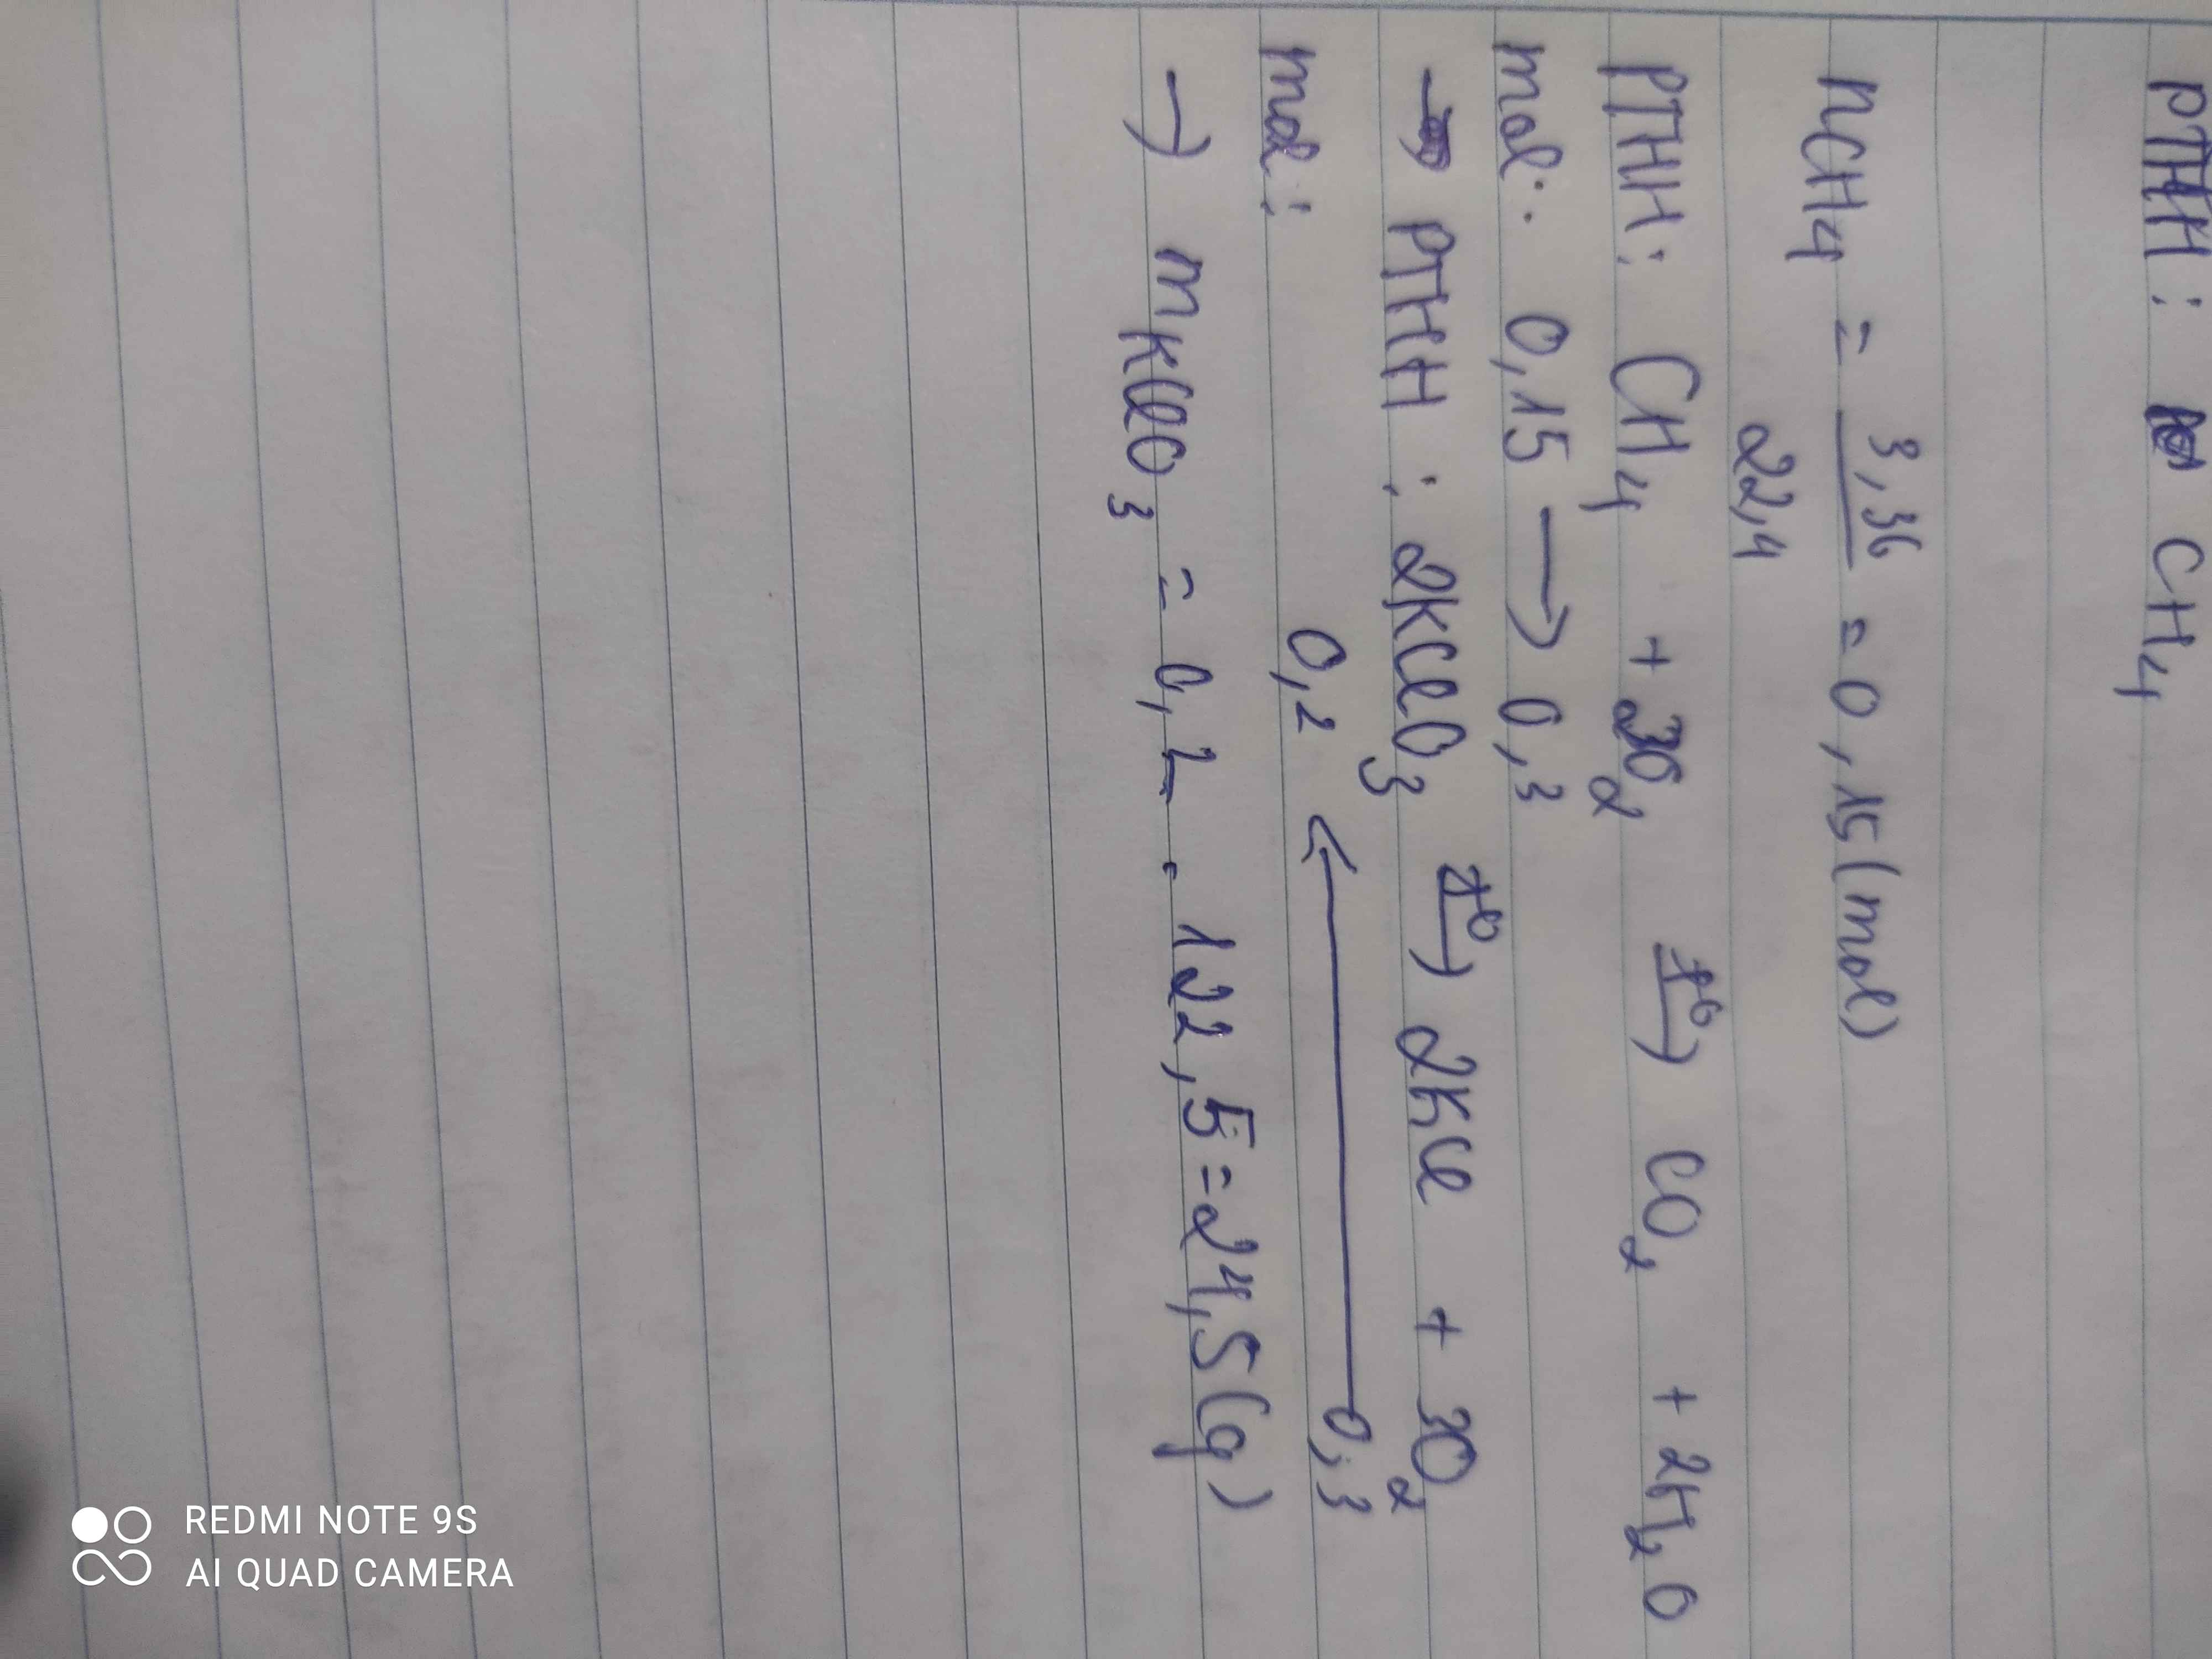 PTHH: CH4
nCH4 = 3,36 / 22,4 = 0,15 (mol)
PTHH: CH4 + 2O2 t° → CO2 + 2H2O
mol: 0,15 → 0,3
→ PTHH: 2KClO3 t° → 2KCl + 3O2
mol: 0,2 ← 0,3
→ mKClO3 = 0,2 . 122,5 = 24,5 (g)
REDMI NOTE 9S
AI QUAD CAMERA